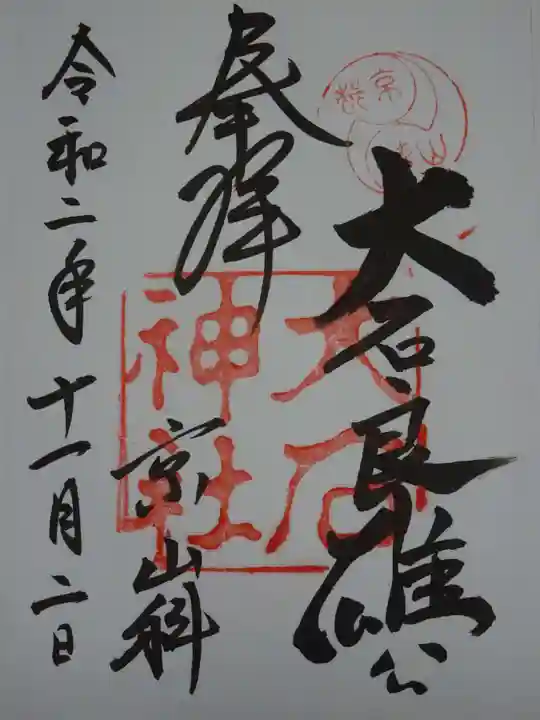 大石良雄公
奉拝
京山科
令和二年十一月二日
大石
神社